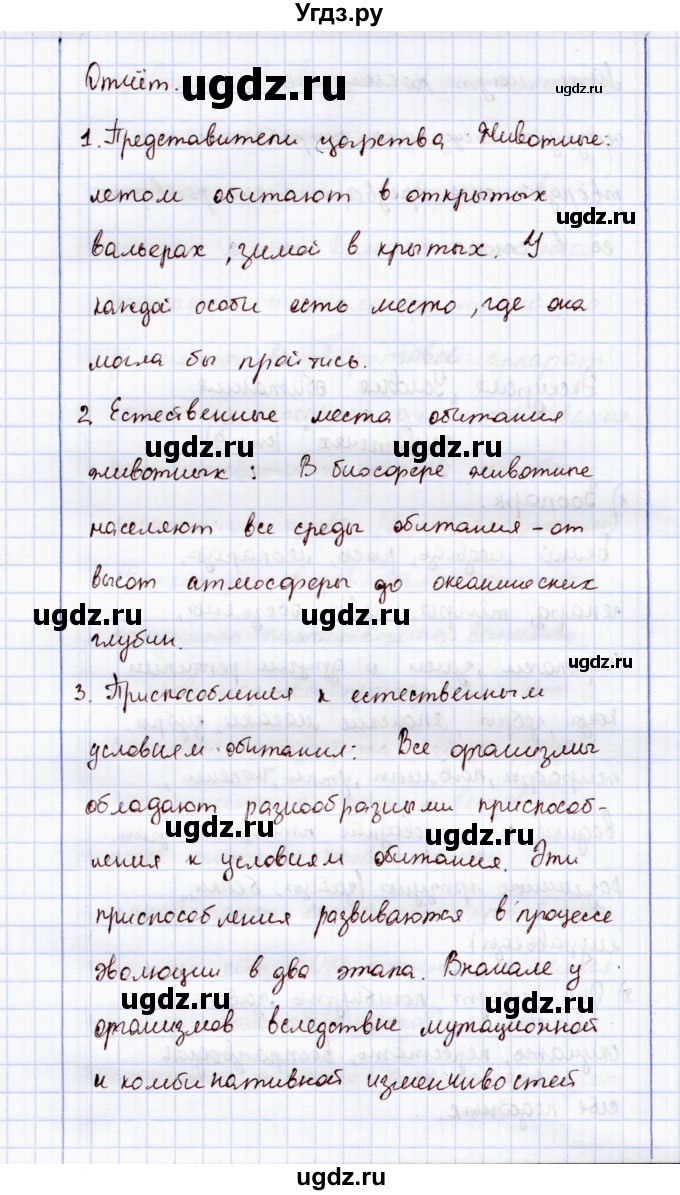 Угдз.ру
Отчёт. ugdz.ru ugdz.ru
1. Представители царства Животные:
летом обитают в открытых
ugdz.ru
вальерах, зимой в крытых. У
каждой особи есть место, где она
могла бы пройтись.
2. Естественные места обитания
ugdz.ru ugdz.ru
животных: В биосфере животные
населяют все среды обитания - от
высот атмосферы до океанических
ugdz.ru
глубин.
ugdz.ru
3. Приспособления к естественным
условием обитания: Все организмы
обладают разнообразными приспособ-
ugdz.ru ugdz.ru
ления к условием обитания. Эти
приспособления развиваются в процессе
эволюции в два этапа. Вначале у
ugdz.ru ugdz.ru
организмов вследствие мутационной
и комбинативной изменчивостей
ugdz.ru